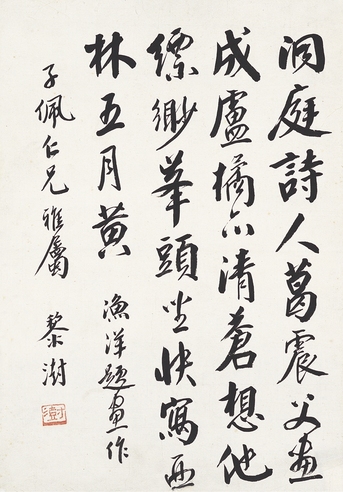 洞庭詩人葛震父畫
成盧橘亦清蒼想他
縹緲峯頭坐快寫
林五月黃
漁洋題畫作
子佩仁兄雅屬
黎澍